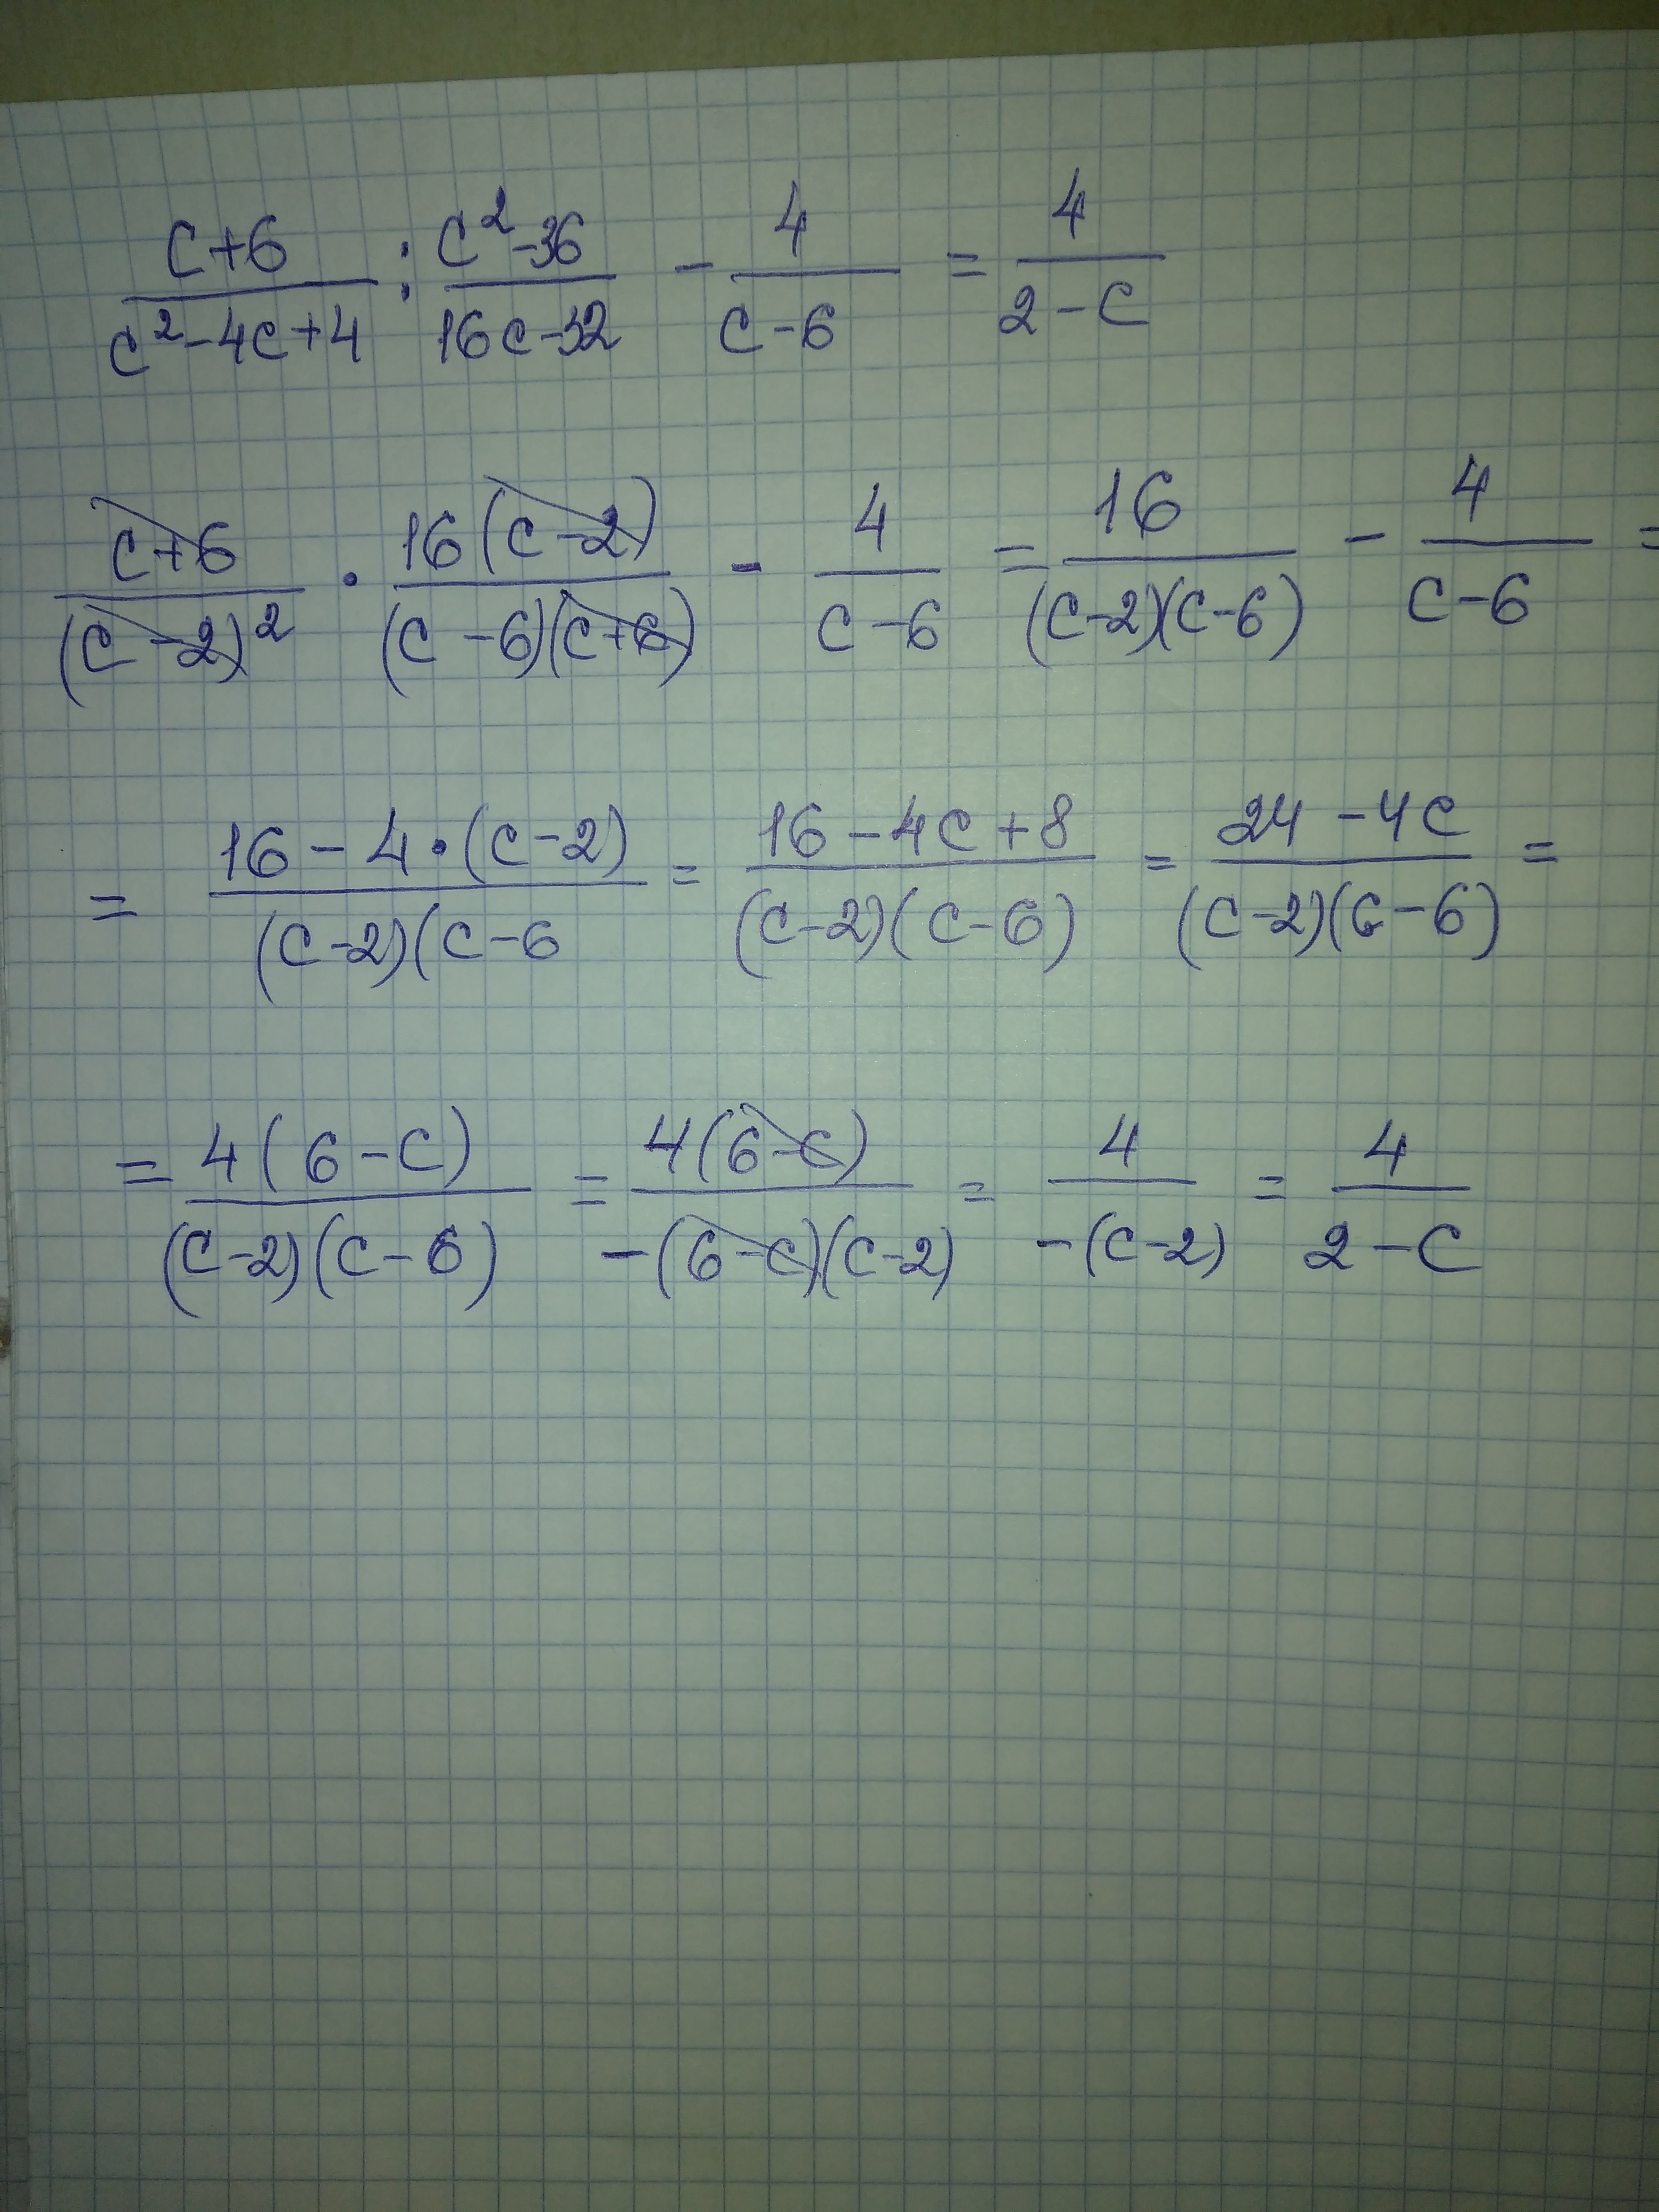 (c+6)/(c²-4c+4) : (c²-36)/(16c-32) - 4/(c-6) = 4/(2-c)
(c+6)/(c-2)² · 16(c-2)/((c-6)(c+6)) - 4/(c-6) = 16/((c-2)(c-6)) - 4/(c-6) =
= (16-4·(c-2))/((c-2)(c-6) = (16-4c+8)/((c-2)(c-6)) = (24-4c)/((c-2)(c-6)) =
= 4(6-c)/((c-2)(c-6)) = 4(6-c)/(-(6-c)(c-2)) = 4/(-(c-2)) = 4/(2-c)